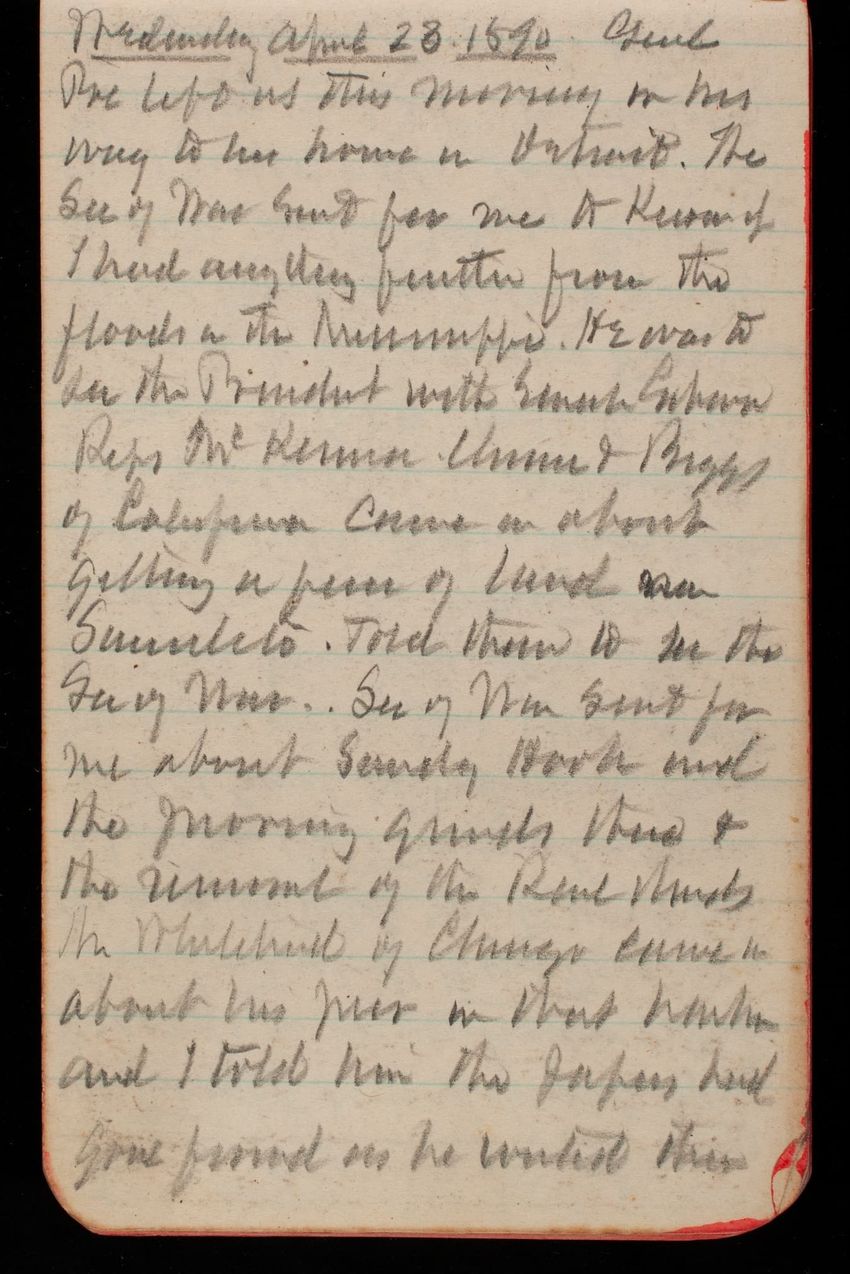 Wednesday April 23. 1890. Genl
Poe left us this morning on his
way to his home in Detroit. The
Sec of War sent for me to know if
I had anything further from the
floods in the Mississippi. He was to
see the President with
Reps McKenna & Biggs
of California came in about
getting a piece of land near
Sausalito. Told them to see the
Sec of War.. Sec of War sent for
me about Sandy Hook and
the proving grounds there &
the removal of the
Mr Whitehead of Chicago came in
about his pier in that harbor
and I told him the papers had
gone forward as he wanted them